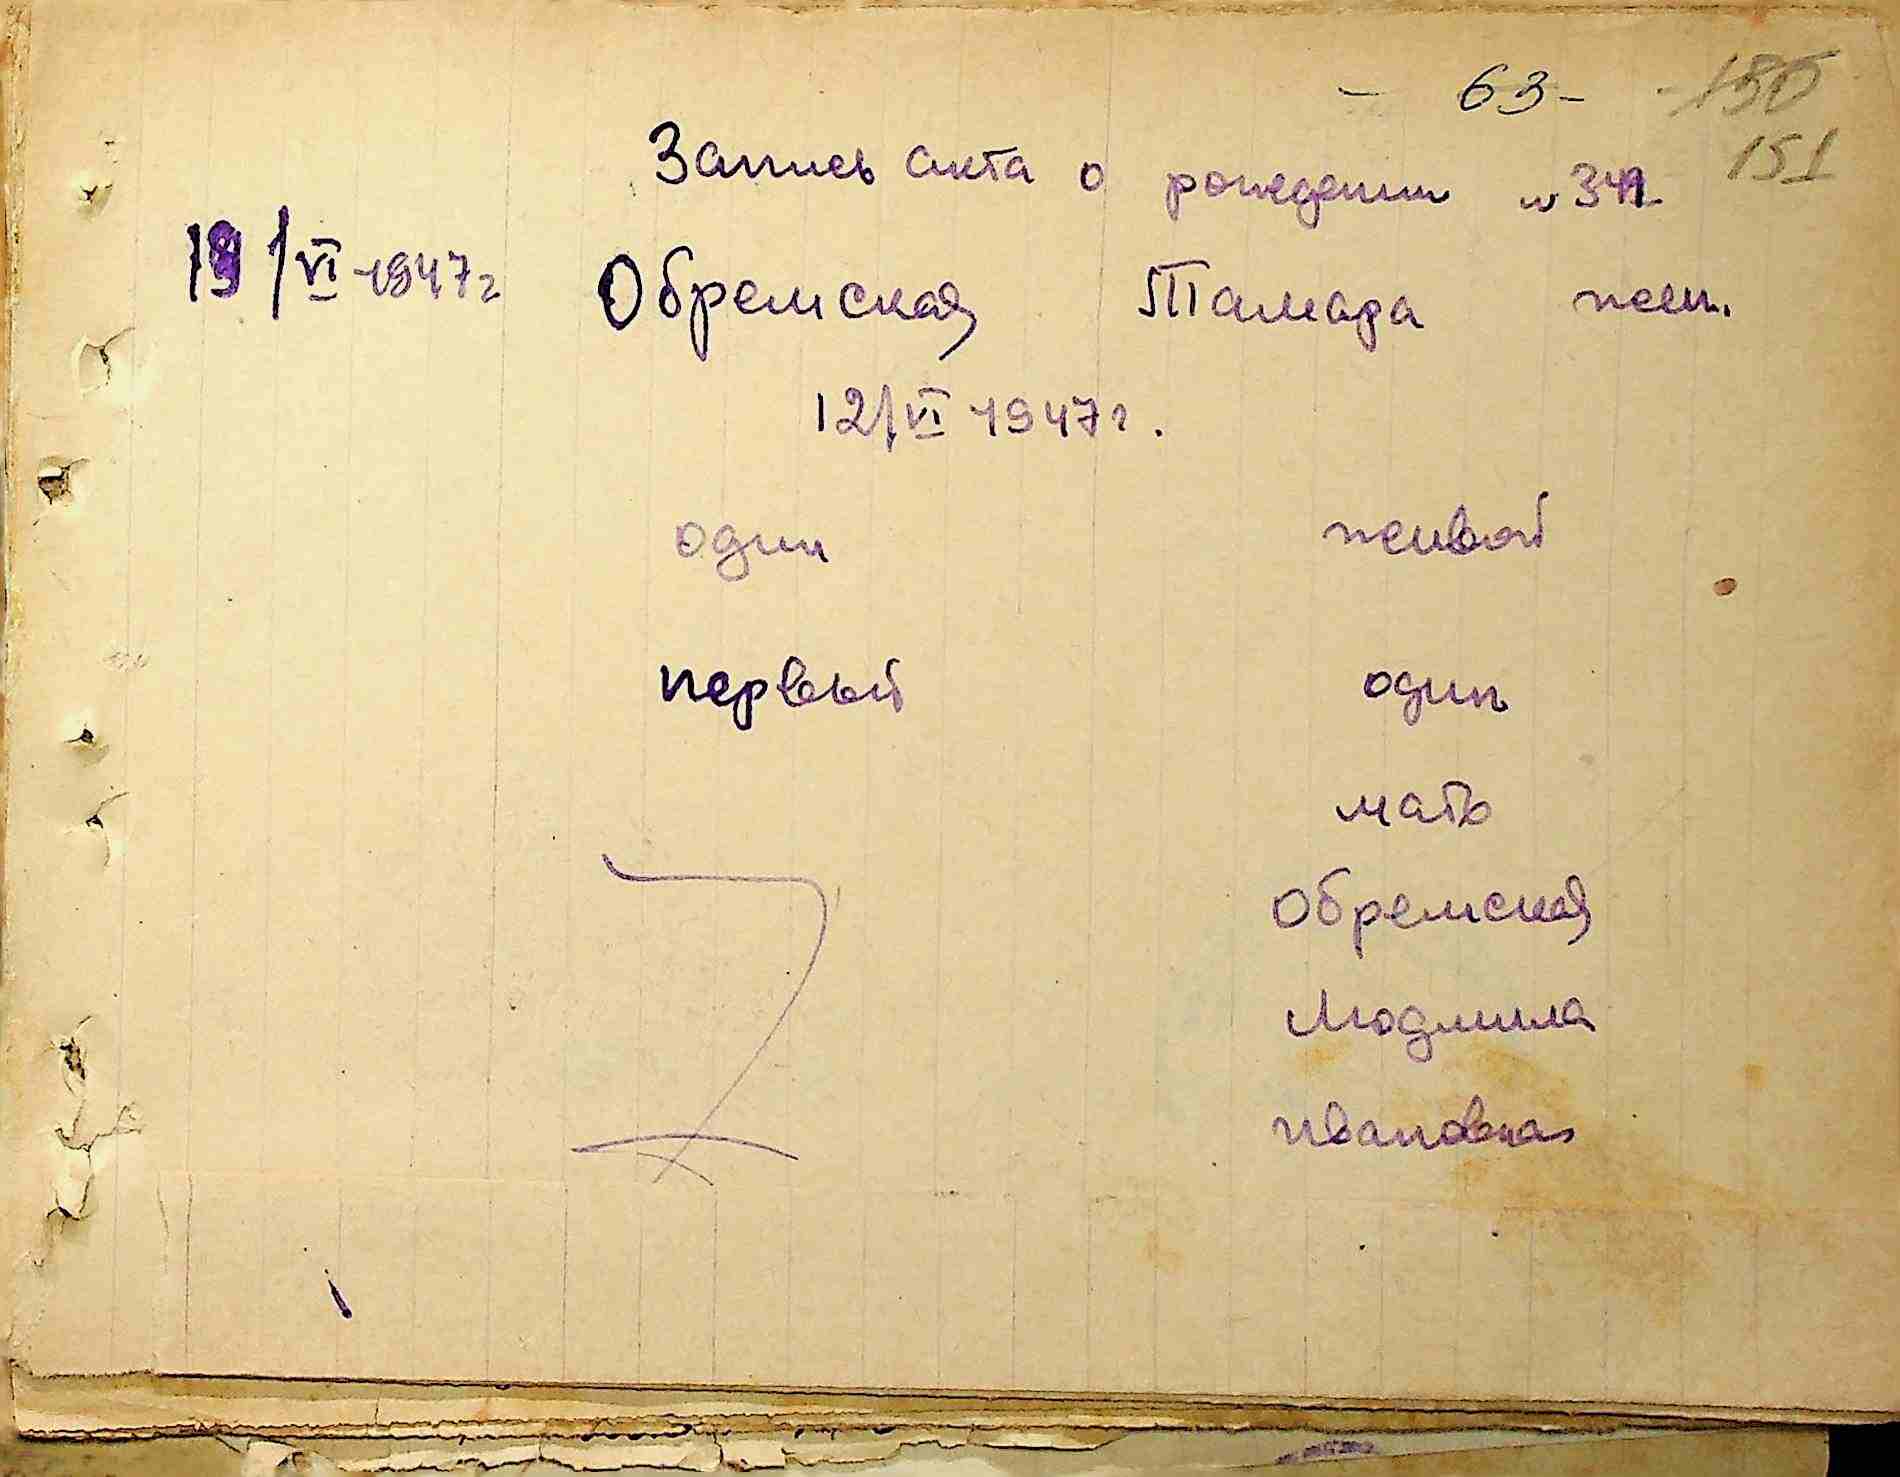 - 63 -
151
Запись акта о рождении №
/VI 1947г Обремская Тамара жен.
12/VI 1947г.
один живой
первый один
мать
Обремская
Людмила
Ивановна